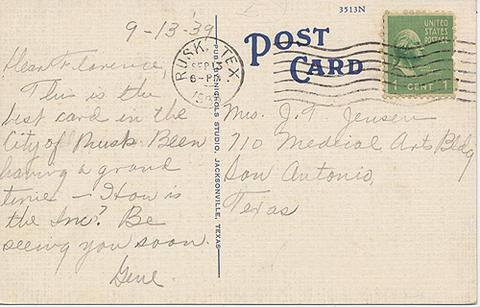 3513N
9-13-39
POST CARD
UNITED STATES POSTAGE
1 CENT 1
RUSK, TEX.
SEP 13
6-PM
Dear Florence,
This is the
best card in the
City of Rusk. Been
having a grand
time - How is
the Inc? Be
seeing you soon.
Gene.
Mrs. J. T. Jensen
710 Medical Arts Bldg
San Antonio,
Texas
PUB. BY NICHOLS STUDIO, JACKSONVILLE, TEXAS